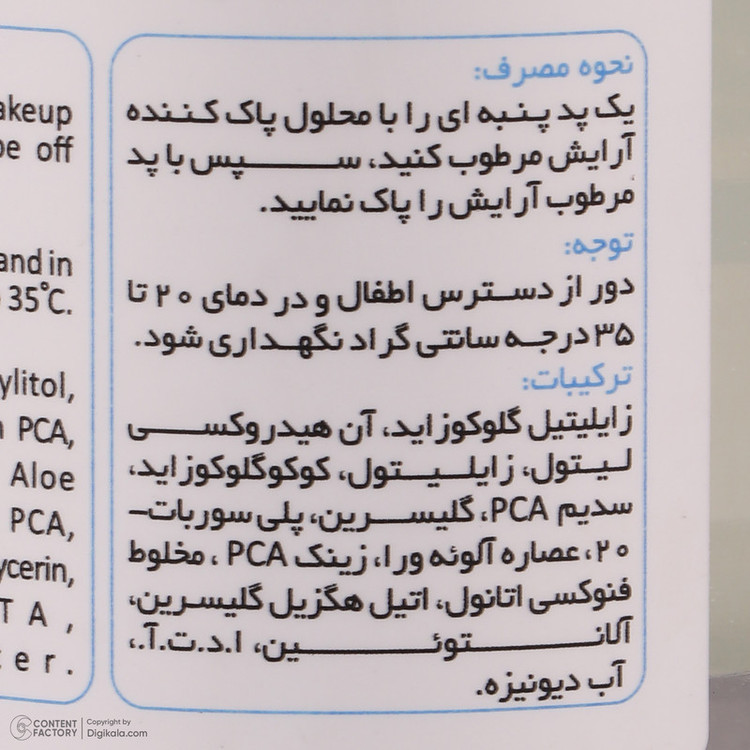 نحوه مصرف:
یک پد پنبه ای را با محلول پاک کننده
آرایش مرطوب کنید، سپس با پد
مرطوب آرایش را پاک نمایید.
توجه:
دور از دسترس اطفال و در دمای ۲۰ تا
۳۵ درجه سانتی گراد نگهداری شود.
ترکیبات:
زایلیتیل گلوکوزاید، آن هیدروکسی
لیتول، زایلیتول، کوکوگلوکوزاید،
سدیم PCA، گلیسرین، پلی سوربات-
۲۰، عصاره آلوئه ورا، زینک PCA ، مخلوط
فنوکسی اتانول، اتیل هگزیل گلیسرین،
آلانتوئین، ا.د.ت.آ.،
آب دیونیزه.
akeup
be off
and in
35°C.
ylitol,
PCA,
Aloe
PCA,
ycerin,
T A ,
e r .
CONTENT FACTORY
Copyright by
Digikala.com